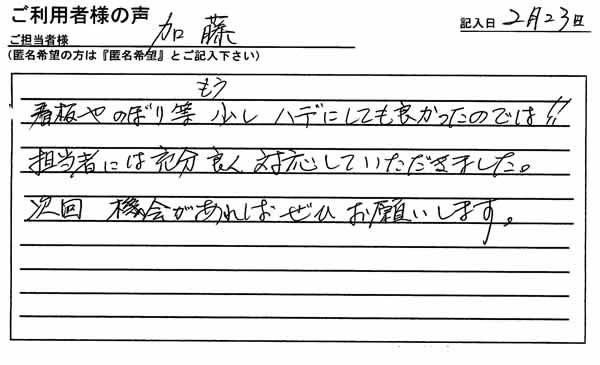 ご利用者様の声
記入日 2月23日
ご担当者様 加藤
(匿名希望の方は『匿名希望』とご記入下さい)
もう
看板やのぼり等 少し ハデにしても良かったのでは!!
担当者には充分良く対応していただきました。
次回 機会があればぜひ お願いします。